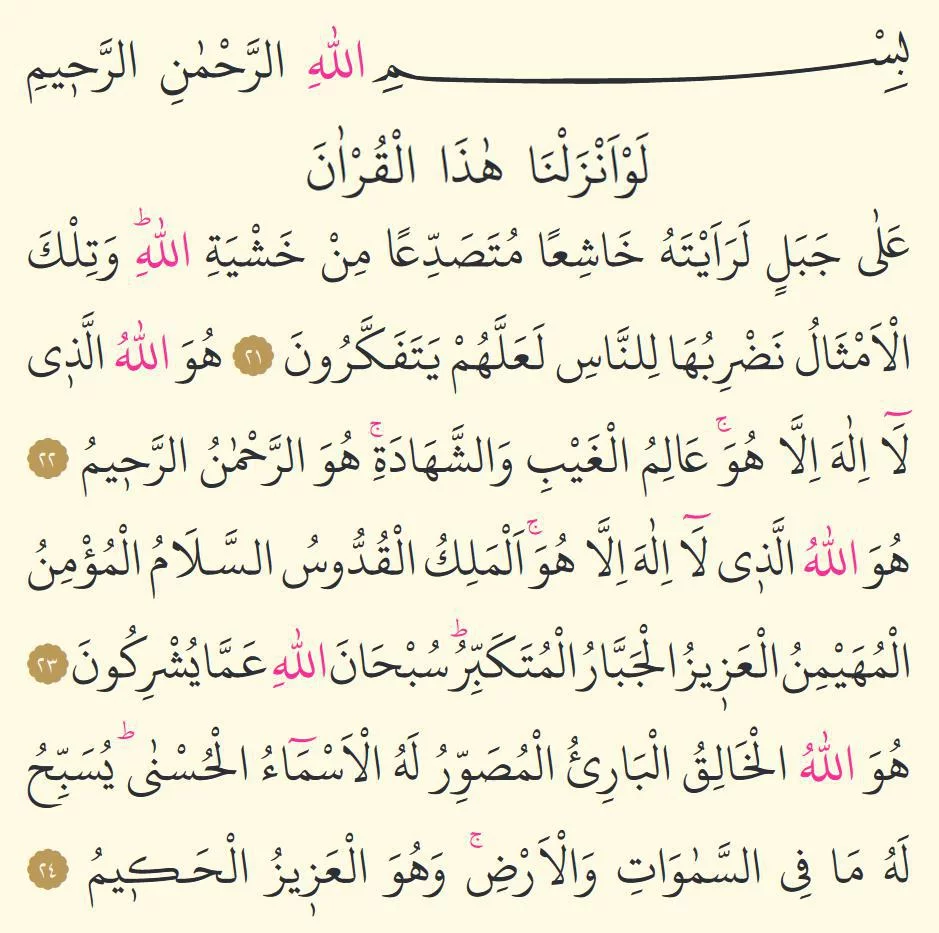 بِسْمِ اللّٰهِ الرَّحْمٰنِ الرَّح۪يمِ
لَوْاَنْزَلْنَا هٰذَا الْقُرْاٰنَ
عَلٰى جَبَلٍ لَرَاَيْتَهُ خَاشِعًا مُتَصَدِّعًا مِنْ خَشْيَةِ اللّٰهِۜ وَتِلْكَ
الْاَمْثَالُ نَضْرِبُهَا لِلنَّاسِ لَعَلَّهُمْ يَتَفَكَّرُونَ ﴿٢١﴾ هُوَ اللّٰهُ الَّذ۪ى
لَٓا اِلٰهَ اِلَّا هُوَۚ عَالِمُ الْغَيْبِ وَالشَّهَادَةِۚ هُوَ الرَّحْمٰنُ الرَّح۪يمُ ﴿٢٢﴾
هُوَ اللّٰهُ الَّذ۪ى لَٓا اِلٰهَ اِلَّا هُوَۚ اَلْمَلِكُ الْقُدُّوسُ السَّلَامُ الْمُؤْمِنُ
الْمُهَيْمِنُ الْعَز۪يزُ الْجَبَّارُ الْمُتَكَبِّرُۜ سُبْحَانَ اللّٰهِ عَمَّا يُشْرِكُونَ ﴿٢٣﴾
هُوَ اللّٰهُ الْخَالِقُ الْبَارِئُ الْمُصَوِّرُ لَهُ الْاَسْمَٓاءُ الْحُسْنٰىۜ يُسَبِّحُ
لَهُ مَا فِى السَّمٰوَاتِ وَالْاَرْضِۚ وَهُوَ الْعَز۪يزُ الْحَك۪يمُ ﴿٢٤﴾